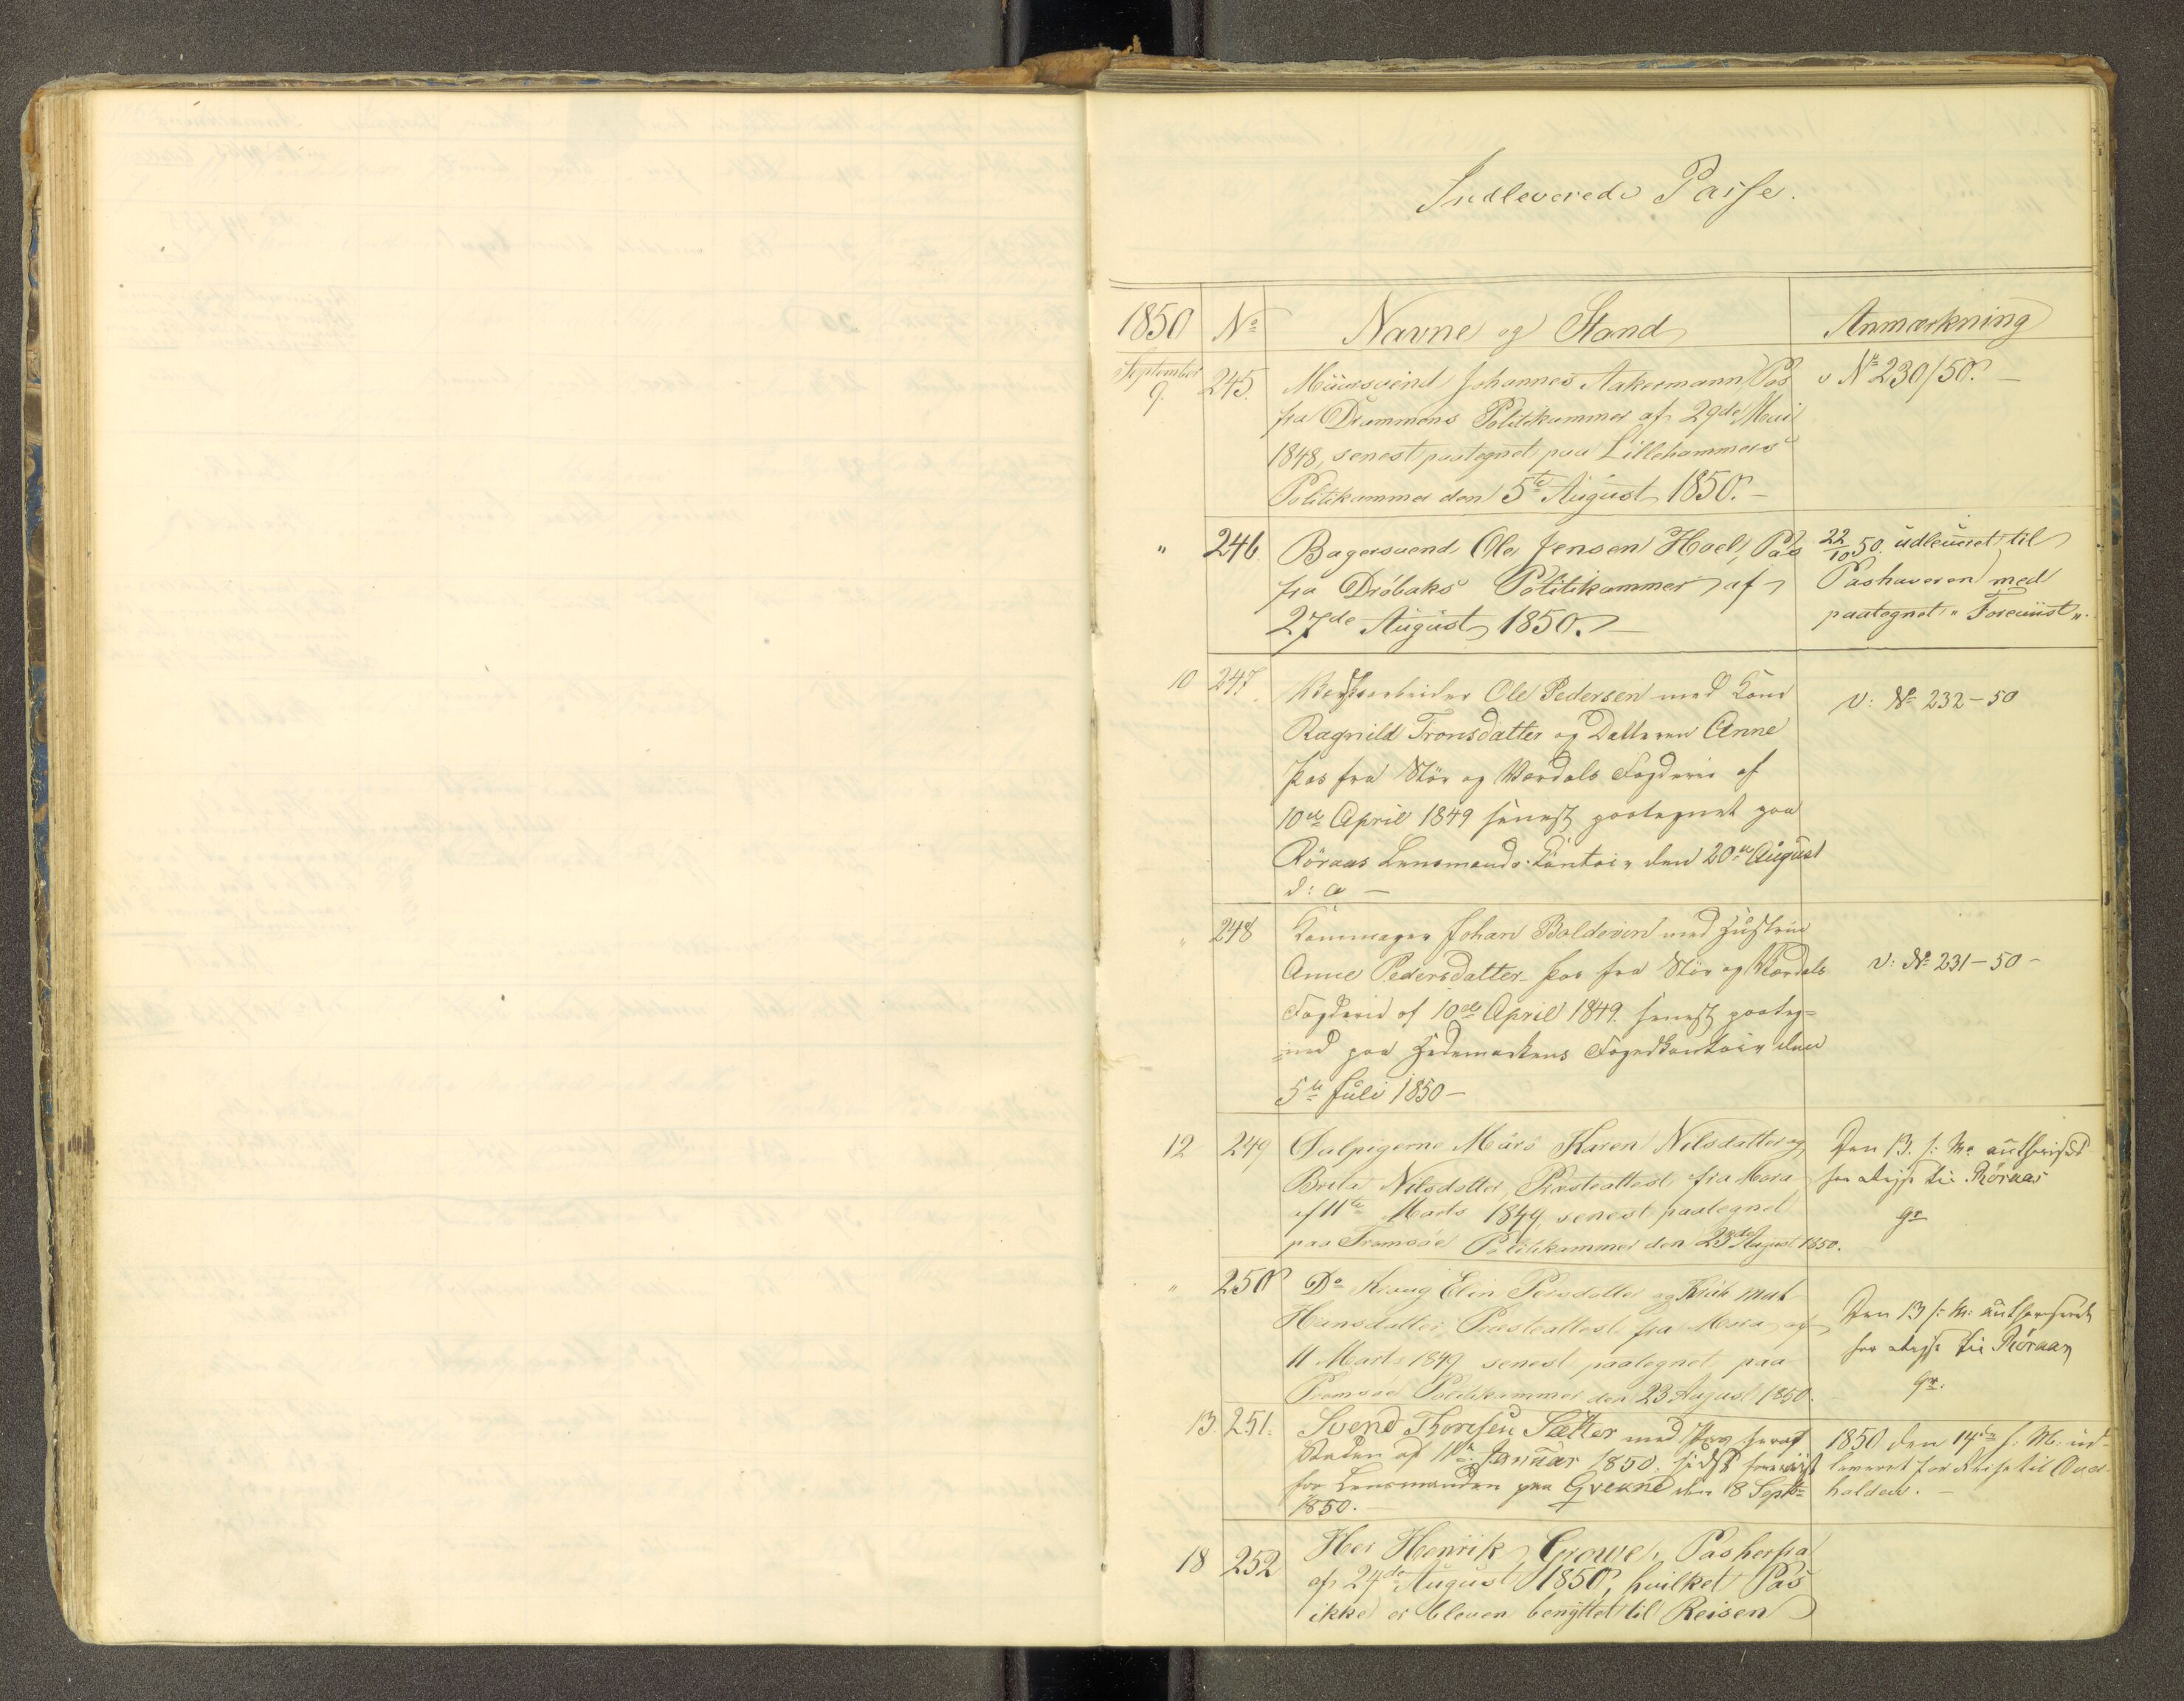 Indleverede Passe.
1850 No Navne og Stand Anmærkning
September 9. 245. Muursvend Johannes Aakermann Pas
fra Drammens Politikammer af 29de Mai
1848, senest paategnet paa Lillehammers
Politikammer den 5te August 1850.
v No 230/50.
" 246 Bagersvend Ole Jensen Hoel, Pas
fra Dröbaks Politikammer af
27de August 1850.
22/10 50. udleveret til
Pashaveren med
paategnet "Foreviist".
10 247 Ole Pedersen med Kone
Ragnild Tronsdatter og Datteren Anne
Pas fra Stör og Verdals Fogderie af
10de April 1849 senest paategnet paa
Röraas Lensmands-Contoir den 20de August
d: a
v: No 232-50
" 248 Johan Boldevin med Hustrue
Anne Pedersdatter Pas fra Stör og Værdals
Fogderie af 10de April 1849. senest paateg-
net paa Hedemarkens Fogedkontoir den
5te Juli 1850
v: No 231-50
12 249 Dalpigerne Märs Karen Nilsdatter og
Brita Nilsdatter, Præsteattest fra Mora
af 11te Marts 1849, senest paategnet
paa Tromsöe Politikammer den 23de August 1850.
Den 13. s: M:
for at rejse til Röraas
250 Do Elin Persdatter og
Hansdatter, Præsteattest fra Mora af
11 Marts 1849 senest paategnet paa
Tromsöe Politikammer den 23 August 1850.
Den 13 s: M:
for at rejse til Röraas
13. 251. Svend Thoresen Sætter med Pas heraf
Staden af 11te Januar 1850. sidst foreviist
for Lensmanden paa Qvekne den 8 Septbr
1850.
1850 den 14de s: M: ud-
leveret for at rejse til Over-
halden.
18 252 Her Henrik Growe, Pas herfra
af 24de August 1850, hvilket Pas
ikke er bleven benyttet til Reisen